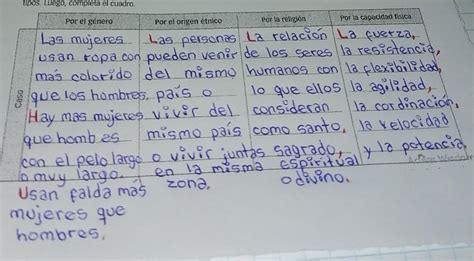 tipos. Luego, completa el cuadro.
Caso
Por el género
Las mujeres
usan ropa con
mas colorido
que los hombres.
Hay mas mujeres
que hombres
con el pelo largo
o muy largo.
Usan falda mas
mujeres que
hombres.
Por el origen étnico
Las personas
pueden venir
del mismo
país o
vivir del
mismo país
o vivir juntas
en la misma
zona.
Por la religión
La relación
de los seres
humanos con
lo que ellos
consideran
como santo,
sagrado,
espiritual
o divino.
Por la capacidad física
La fuerza,
la resistencia,
la flexibilidad,
la agilidad,
la cordinación,
la velocidad
y la potencia.